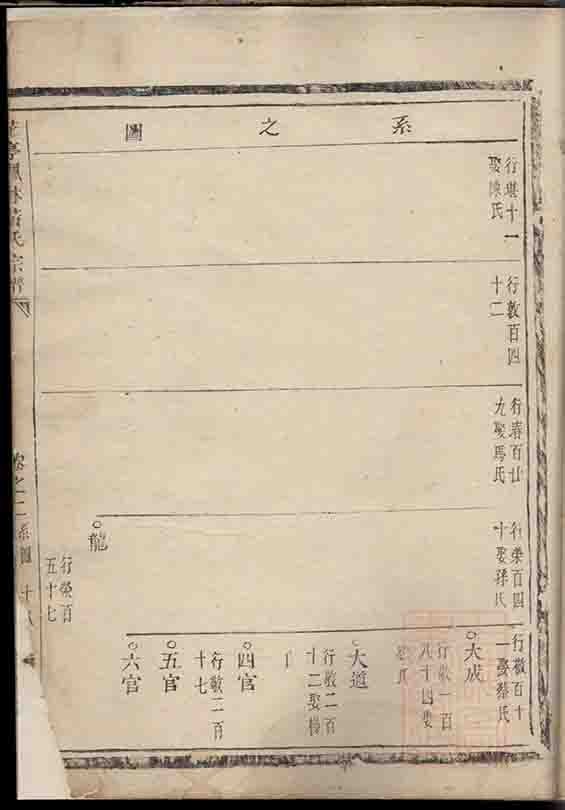 系之圖
行堪十一
娶陳氏
行敦百四
十二
行春百廿
九娶馬氏
行榮百四
十娶孫氏
龍
行榮百
五十七
行敬百十
一娶蔡氏
大成
行敬一百
八十四娶
氏
大道
行敬二百
十二娶楊
四官
行敬二百
十七
五官
六官
氏宗譜
卷之二
系圖